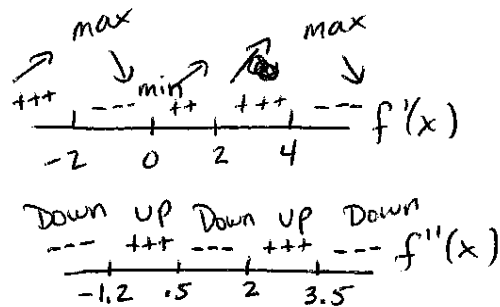 max max
min
+++ --- ++ +++ --- f'(x)
-2 0 2 4
Down up Down up Down
--- +++ --- +++ --- f''(x)
-1.2 .5 2 3.5